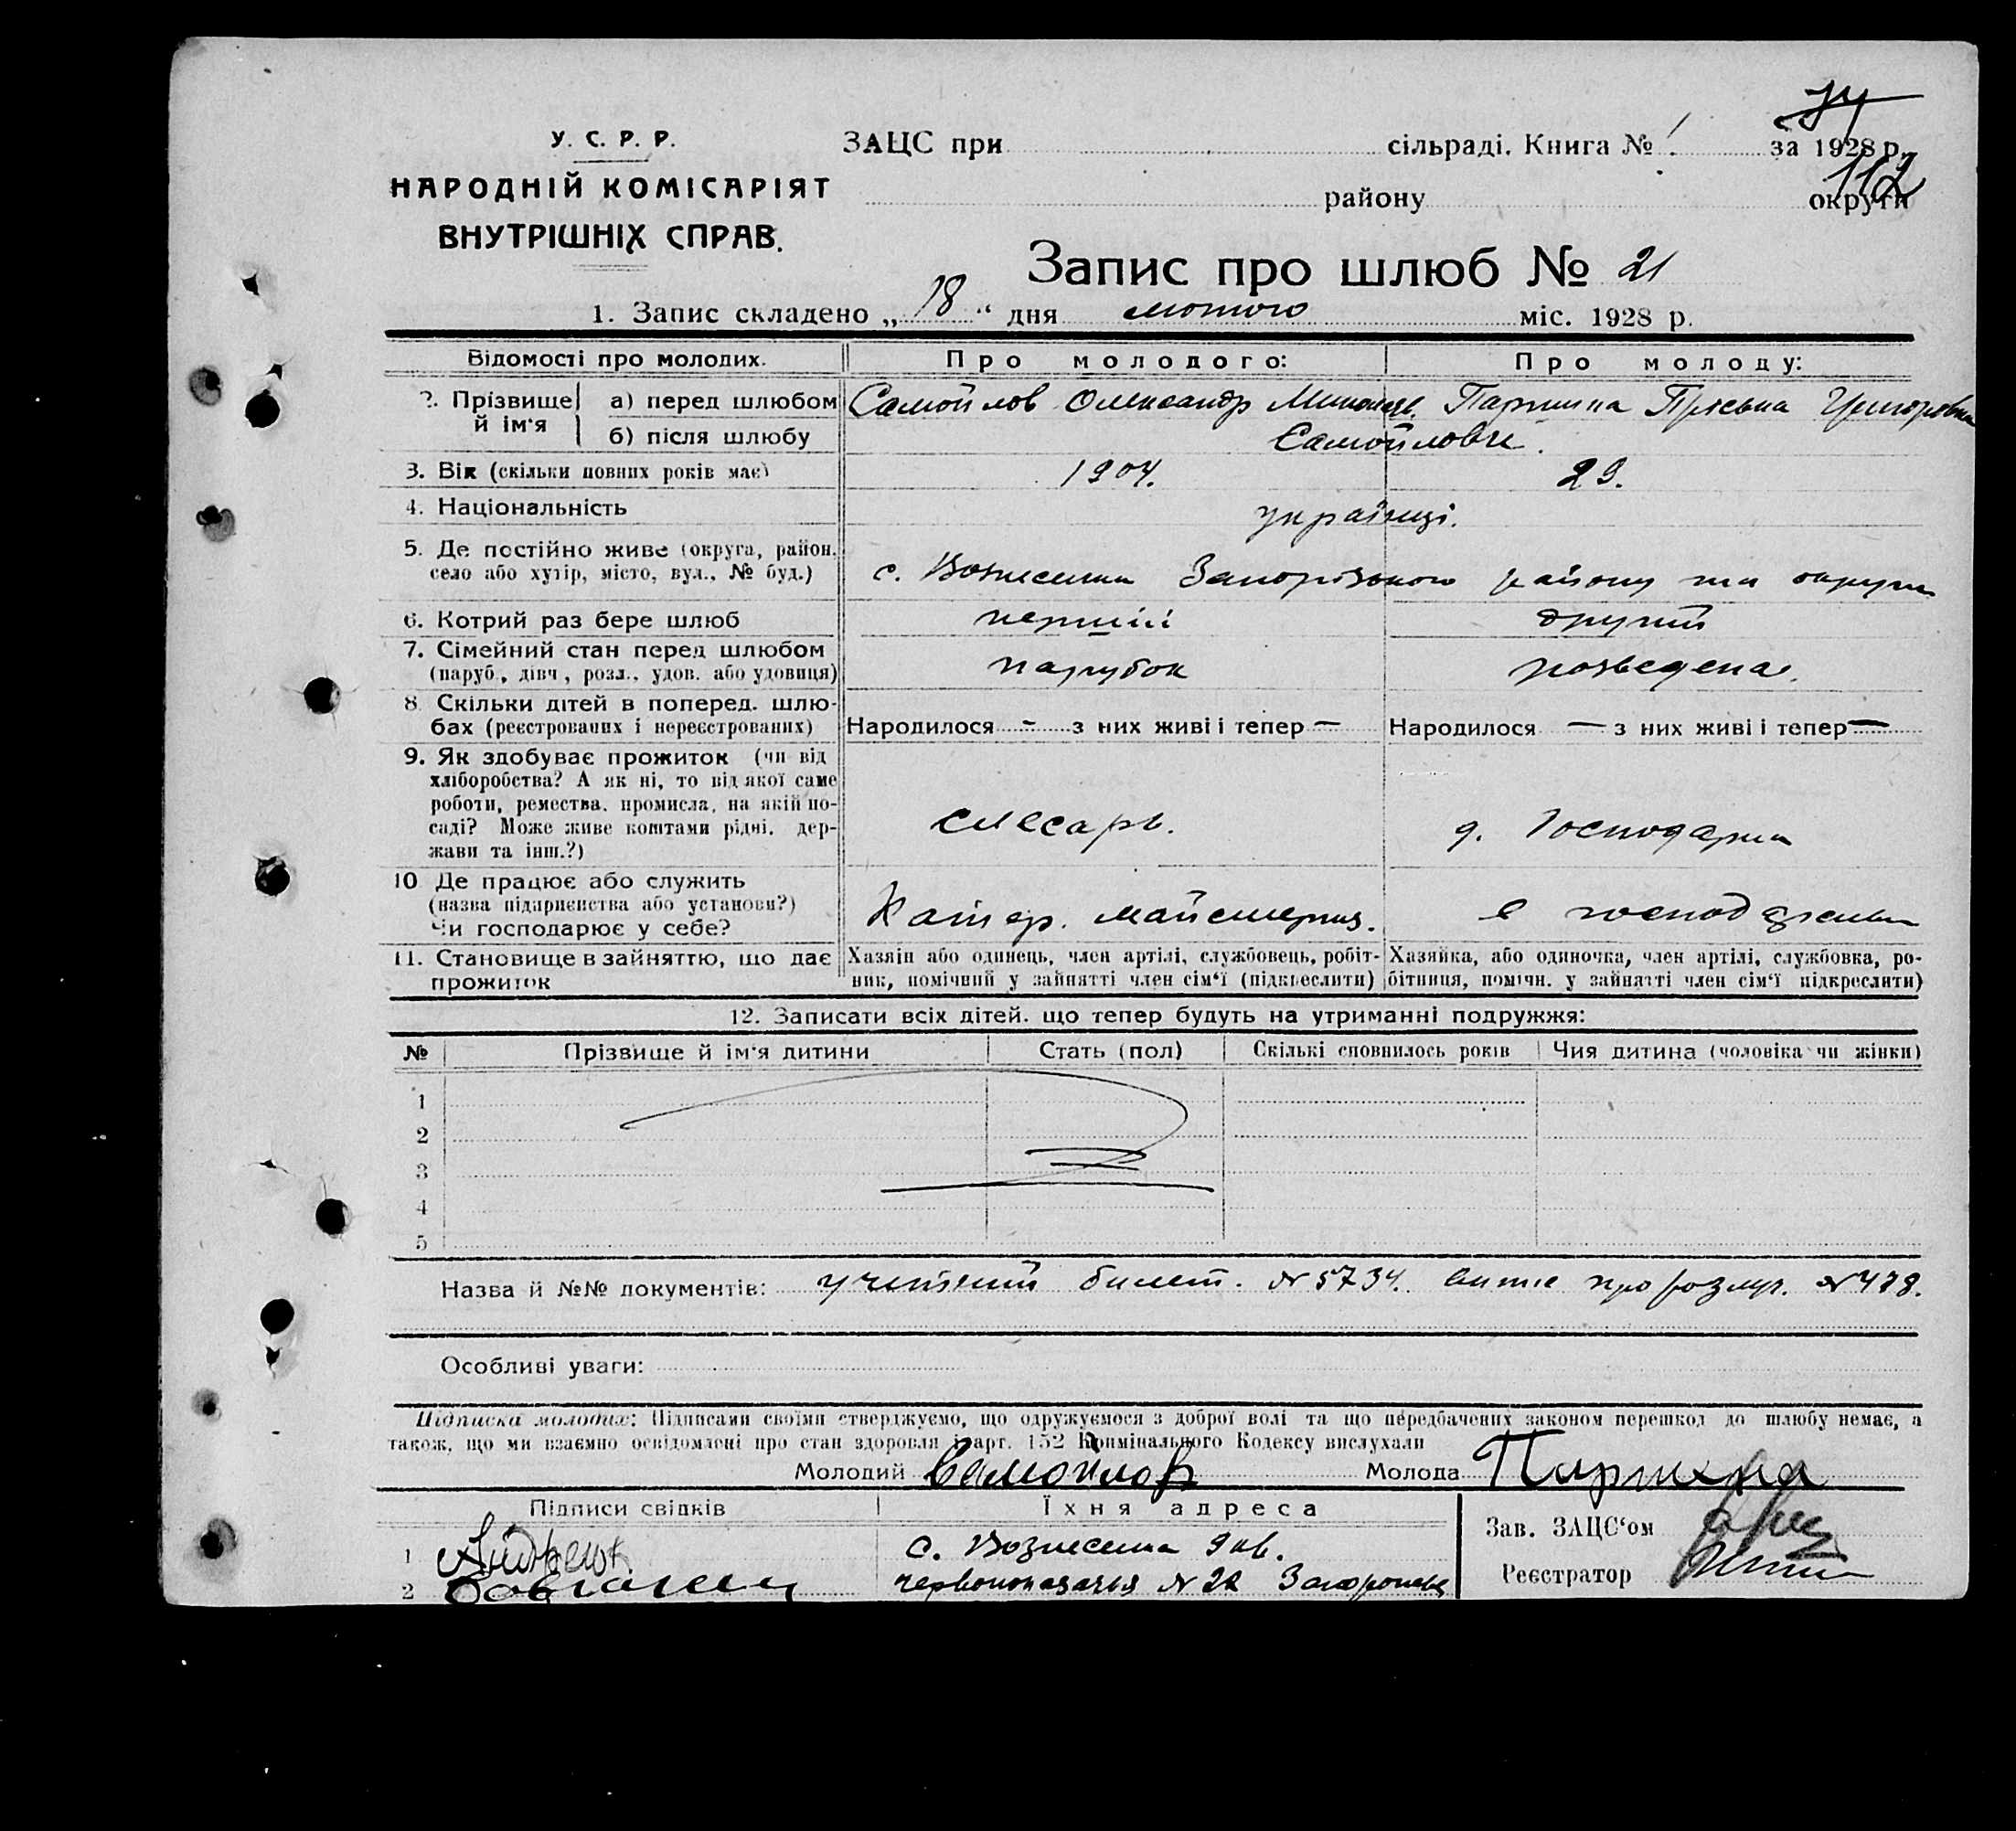 У. С. Р. Р.
НАРОДНІЙ КОМІСАРІЯТ
ВНУТРІШНІХ СПРАВ.
ЗАЦС при сільраді. Книга № 1 за 1928 р.
112
району округи
Запис про шлюб № 21
1. Запис складено „18“ дня лютого міс. 1928 р.
Відомості про молодих. Про молодого: Про молоду:
2. Прізвище й ім'я а) перед шлюбом Самойлов Олександр Миколаєв. Паршина Пріська Григоровна
б) після шлюбу Самойлови.
3. Вік (скільки повних років має) 1904. 29.
4. Національність українці.
5. Де постійно живе (округа, район, село або хутір, місто, вул., № буд.) с. Вознесенка Запорізького району та округи
6. Котрий раз бере шлюб перший другий
7. Сімейний стан перед шлюбом (паруб., дівч., розл., удов. або удовиця) парубок розведена.
8. Скільки дітей в поперед. шлюбах (реєстрованих і нереєстрованих) Народилося - з них живі і тепер — Народилося — з них живі і тепер —
9. Як здобуває прожиток (чи від
хліборобства? А як ні, то від якої саме
роботи, ремества, промисла, на якій по-
саді? Може живе коштами рідні, дер-
жави та інш.?) слесарь. д. Господарка
10. Де працює або служить
(назва підприємства або установи?)
Чи господарює у себе? майстерня.
11. Становище в зайняттю, що дає прожиток
Хазяїн або одинець, член артілі, службовець, робіт-
ник, помічний у зайнятті член сім'ї (підкреслити)
Хазяйка, або одиночка, член артілі, службовка, ро-
бітниця, помічн. у зайнятті член сім'ї підкреслити)
12. Записати всіх дітей, що тепер будуть на утриманні подружжя:
№ Прізвище й ім'я дитини Стать (пол) Скількі сповнилось років Чия дитина (чоловіка чи жінки)
1
2
3
4
5
Назва й №№ документів: билет. № 5734. про розлуч. № 478.
Особливі уваги:
Підписка молодих: Підписами своїми стверджуємо, що одружуємося з доброї волі та що передбачених законом перешкод до шлюбу немає, а
також, що ми взаємно освідомлені про стан здоровля і арт. 152 Кримінального Кодексу вислухали
Молодий Самойлов Молода Паршина
Підписи свідків Їхня адреса
Зав. ЗАЦС'ом
1 с. Вознесенка
2 червоноказачья № 22
Реєстратор